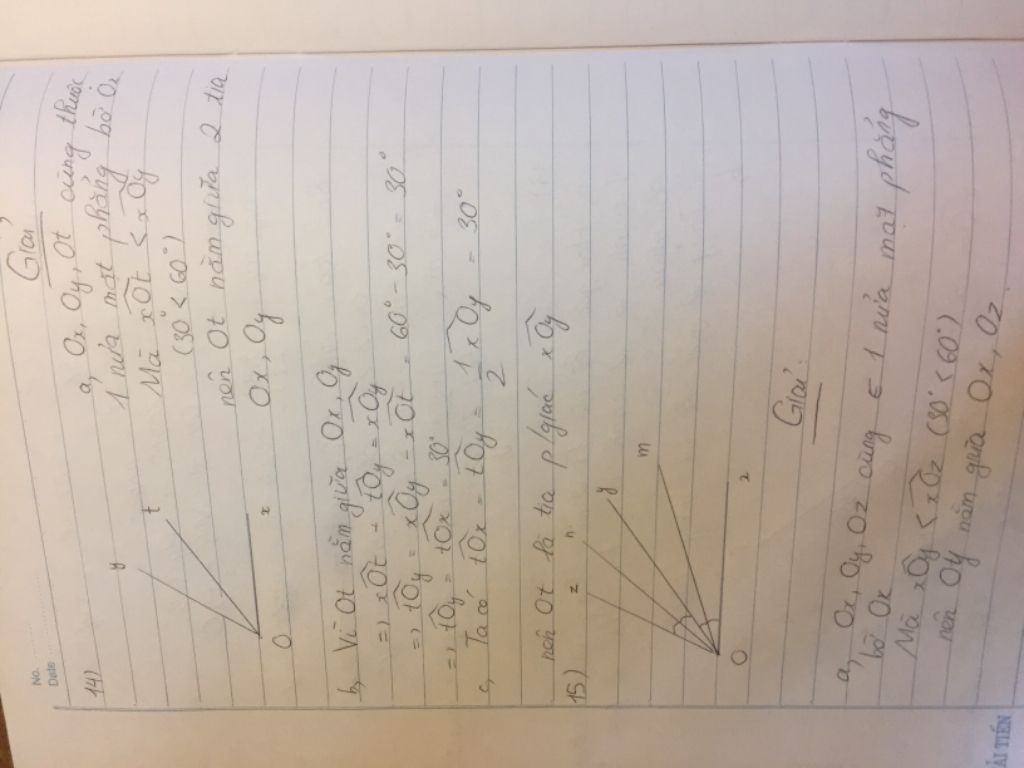 No.
Date
Giải
14)
a, Ox, Oy, Ot cùng thuộc
1 nửa mặt phẳng bờ Ox
Mà xOt < xOy
(30° < 60°)
nên Ot nằm giữa 2 tia
Ox, Oy
y
t
x
O
b, Vì Ot nằm giữa Ox, Oy
=) xOt + tOy = xOy
=) tOy = xOy - xOt = 60° - 30° = 30°
=) tOy = tOx = 30°
c, Ta có tOx = tOy = 1/2 xOy = 30°
nên Ot là tia p/giác xOy
15)
z
n
y
m
x
O
Giải:
a, Ox, Oy, Oz cùng ∈ 1 nửa mặt phẳng
bờ Ox
Mà xOy < xOz (30° < 60°)
nên Oy nằm giữa Ox, Oz
ẢI TIẾN